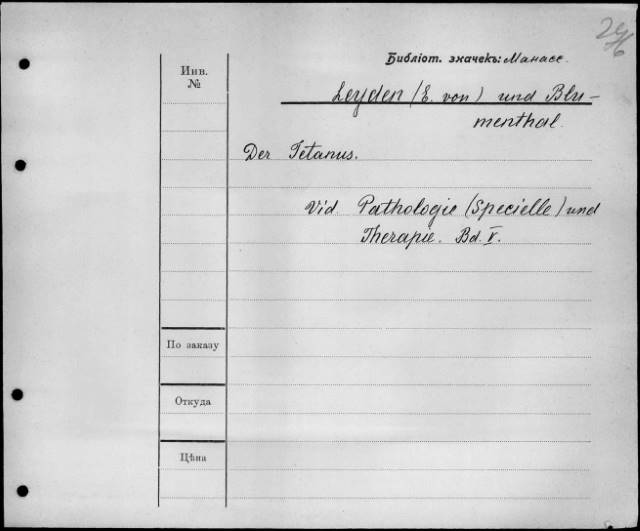 Библіот. значекъ: Манассе.
Инв.
№
Leyden (E. von) und Blu-
menthal.
Der Tetanus.
Vid. Pathologie (Specielle) und
Therapie. Bd. V.
По заказу
Откуда
Цѣна